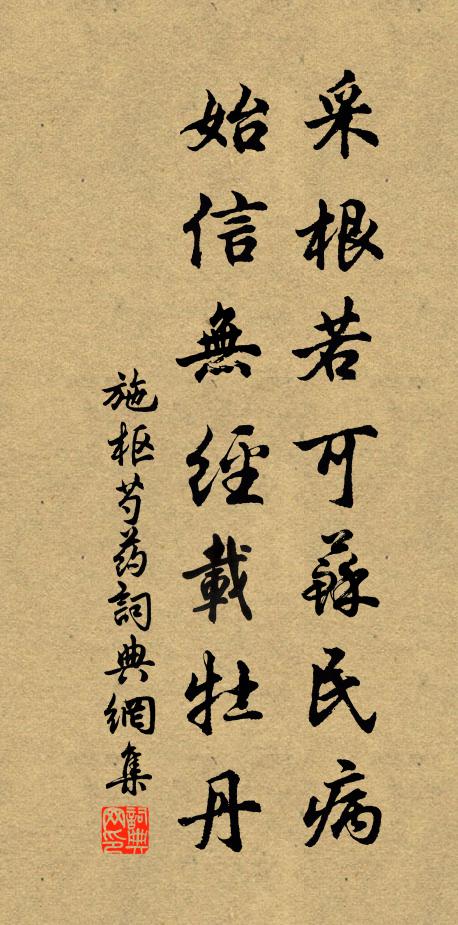 采根若可蘇民病
始信無經載牡丹
施枢芍药詞典網集
詞典网印